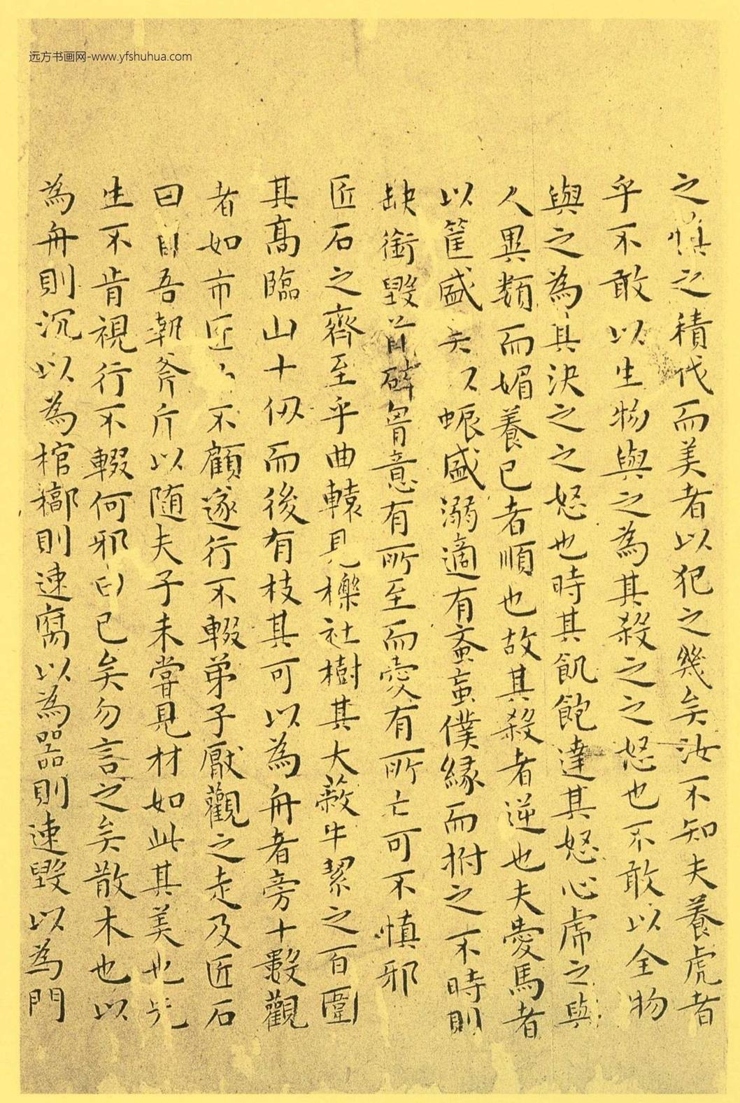 远方书画网-www.yfshuhua.com
之慎之積伐而美者以犯之幾矣汝不知夫養虎者
乎不敢以生物與之為其殺之之怒也不敢以全物
與之為其決之之怒也時其飢飽達其怒心虎之與
人異類而媚養己者順也故其殺者逆也夫愛馬者
以筐盛矢以蜄盛溺適有蚉䖟僕緣而拊之不時則
缺銜毀首碎胷意有所至而愛有所亡可不慎邪
匠石之齊至乎曲轅見櫟社樹其大蔽牛絜之百圍
其高臨山十仞而後有枝其可以為舟者旁十數觀
者如市匠不顧遂行不輟弟子厭觀之走及匠石
曰自吾執斧斤以隨夫子未嘗見材如此其美也先
生不肯視行不輟何邪曰已矣勿言之矣散木也以
為舟則沉以為棺槨則速腐以為器則速毀以為門